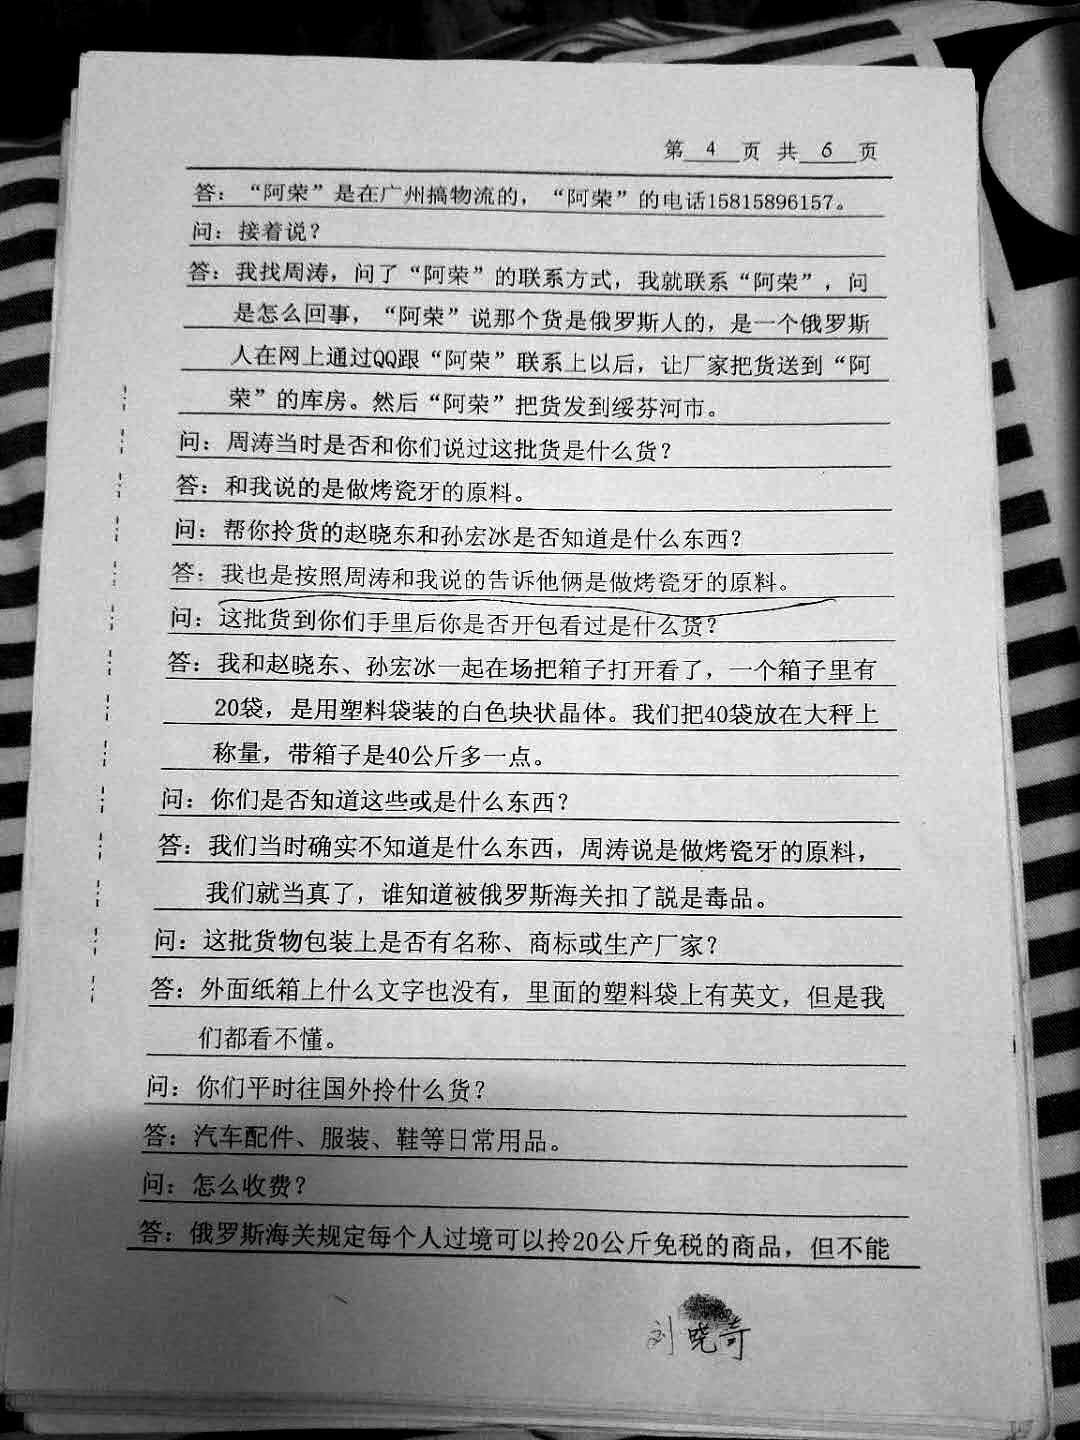 第 4 页 共 6 页
答：“阿荣”是在广州搞物流的，“阿荣”的电话15815896157。
问：接着说？
答：我找周涛，问了“阿荣”的联系方式，我就联系“阿荣”，问
是怎么回事，“阿荣”说那个货是俄罗斯人的，是一个俄罗斯
人在网上通过QQ跟“阿荣”联系上以后，让厂家把货送到“阿
荣”的库房。然后“阿荣”把货发到绥芬河市。
问：周涛当时是否和你们说过这批货是什么货？
答：和我说的是做烤瓷牙的原料。
问：帮你拎货的赵晓东和孙宏冰是否知道是什么东西？
答：我也是按照周涛和我说的告诉他俩是做烤瓷牙的原料。
问：这批货到你们手里后你是否开包看过是什么货？
答：我和赵晓东、孙宏冰一起在场把箱子打开看了，一个箱子里有
20袋，是用塑料袋装的白色块状晶体。我们把40袋放在大秤上
称量，带箱子是40公斤多一点。
问：你们是否知道这些或是什么东西？
答：我们当时确实不知道是什么东西，周涛说是做烤瓷牙的原料，
我们就当真了，谁知道被俄罗斯海关扣了説是毒品。
问：这批货物包装上是否有名称、商标或生产厂家？
答：外面纸箱上什么文字也没有，里面的塑料袋上有英文，但是我
们都看不懂。
问：你们平时往国外拎什么货？
答：汽车配件、服装、鞋等日常用品。
问：怎么收费？
答：俄罗斯海关规定每个人过境可以拎20公斤免税的商品，但不能
刘晓奇